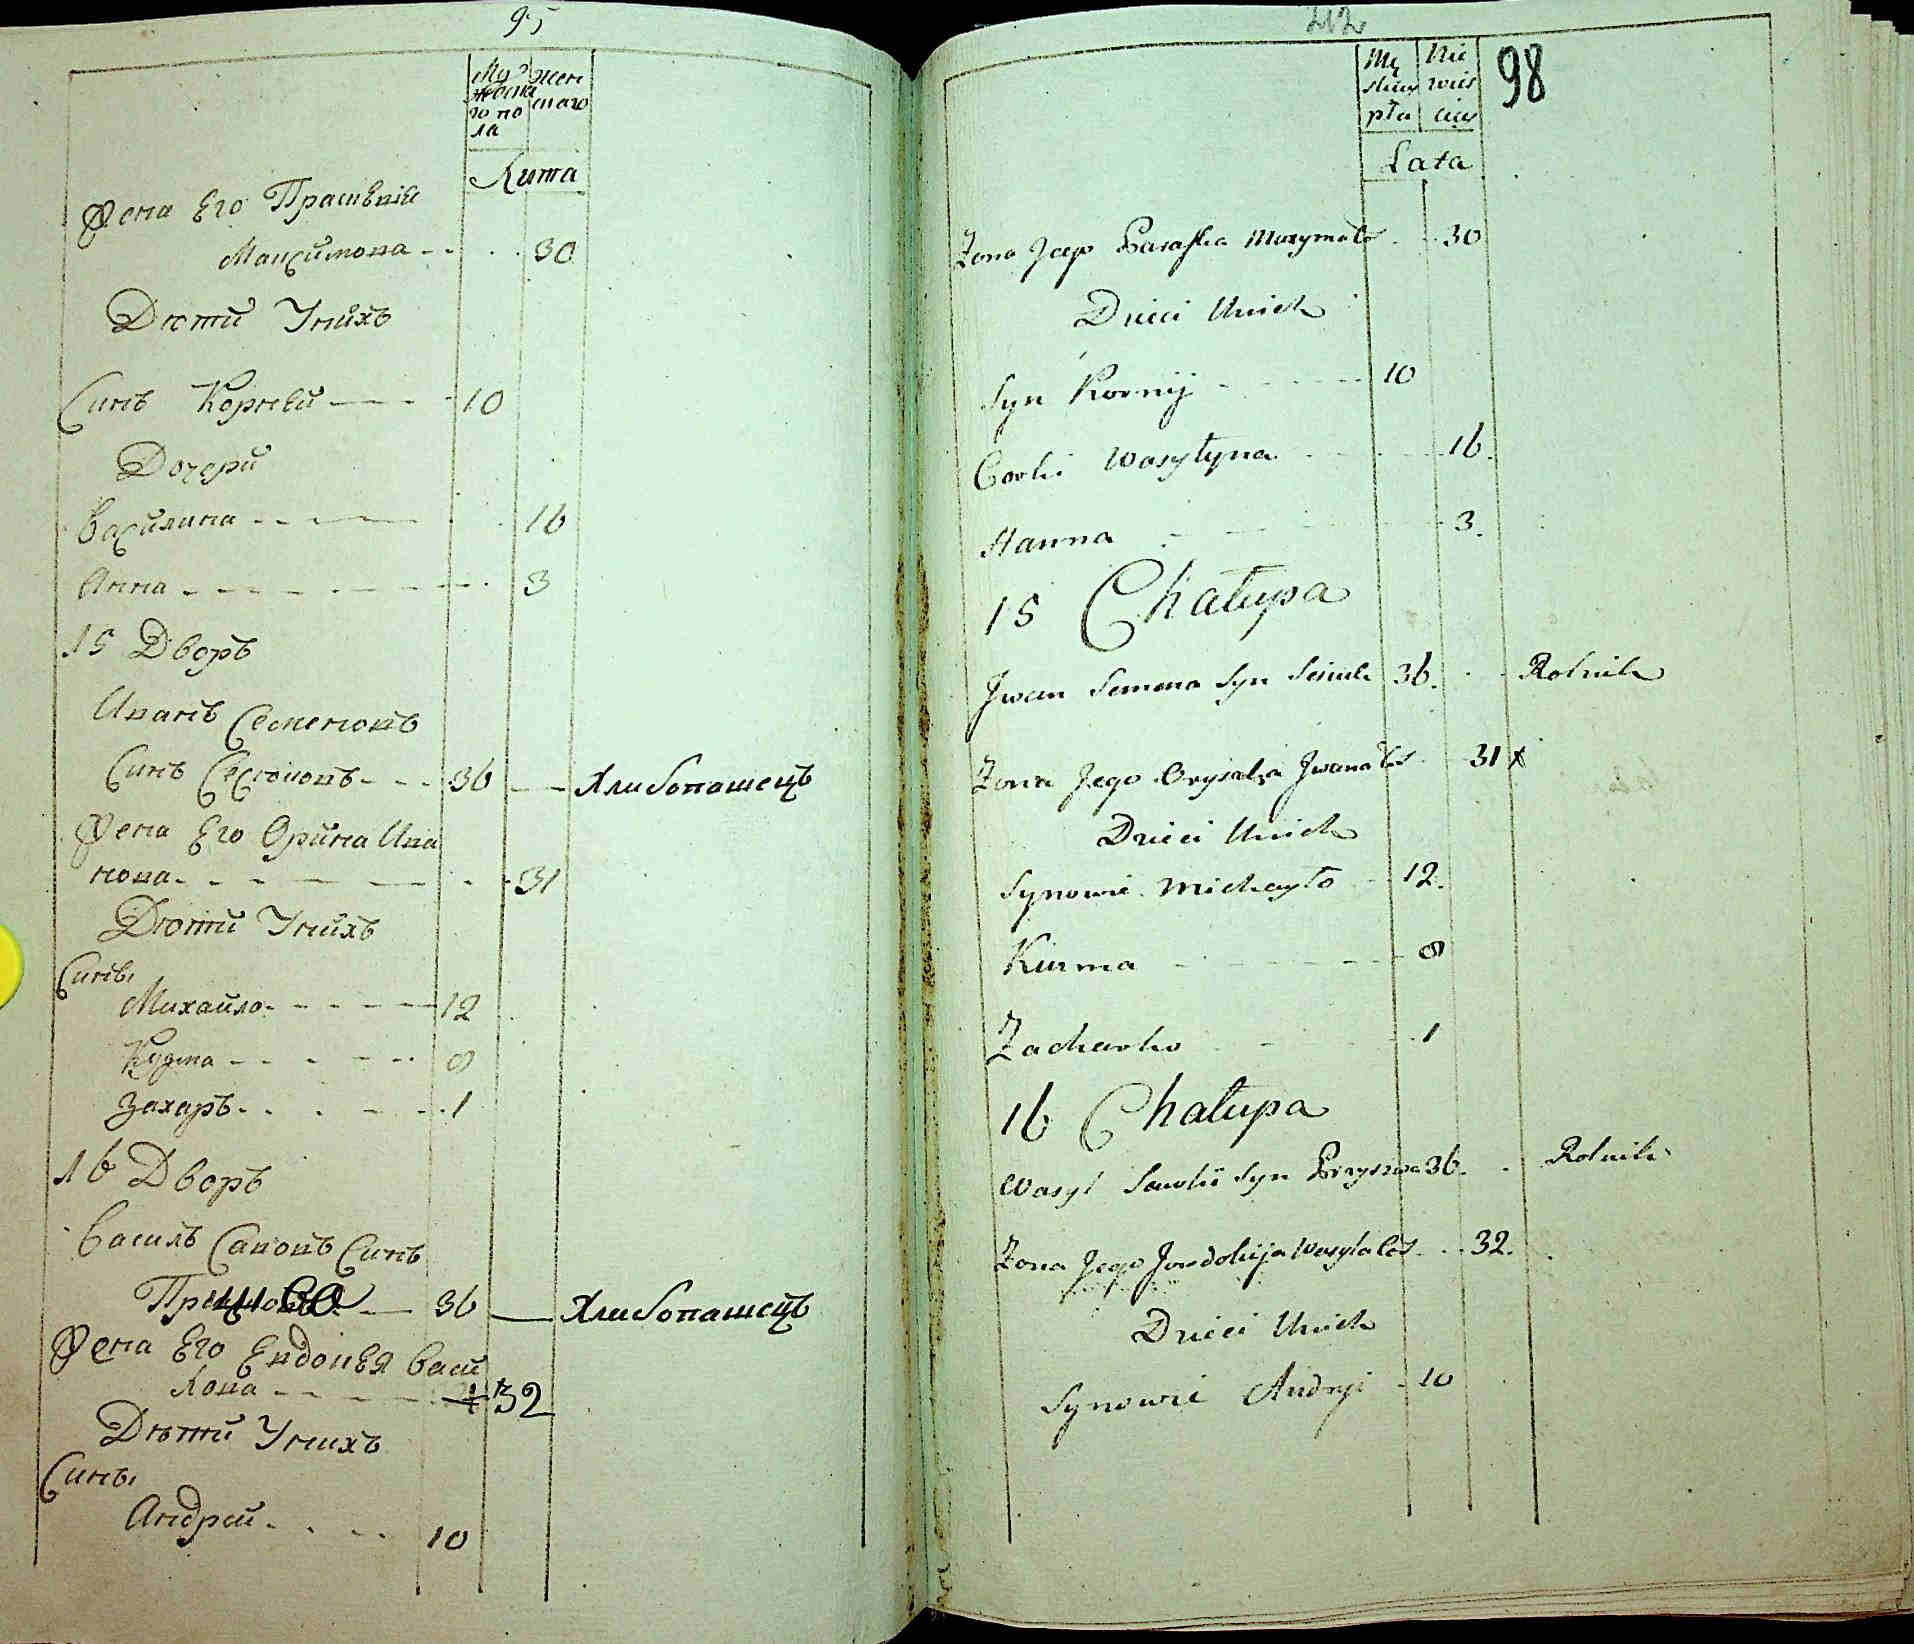 95
Мужеска
го по
ла
жен
скаго
Лѣта
Жена Его Прасковія
Максимова 30
Дѣти Унихъ
Синъ Корнѣй 10
Дочери
Василина 16
Анна 3
15 Дворъ
Иванъ Семеновъ
Синъ 36 Хлибопашецъ
Жена Его Орина Ива
нова 31
Дѣти Унихъ
Сины
Михайло 12
Кузма 8
Захаръ 1
16 Дворъ
Василь Савовъ Синъ
36 Хлибопашецъ
Жена Его Евдокія Васи
лова 32
Дѣти Унихъ
Сины
Андрей 10
212
98
Mę
skiey
płci
Nie
wieś
ciey
Lata
Zona Jego Paraska 30
Dzieci Unich
Syn Kornij 10
Corki Wasylyna 16.
Hanna 3.
15 Chałupa
Jwan Semena Syn 36. Rolnik
Zona Jego Jwana 31
Dzieci Unich
Synowie Michayło 12.
Kuzma 8
Zacharko 1
16 Chałupa
Wasyl Syn 36. Rolnik
Zona Jego Jewdokija 32.
Dzieci Unich
Synowie Andryi 10